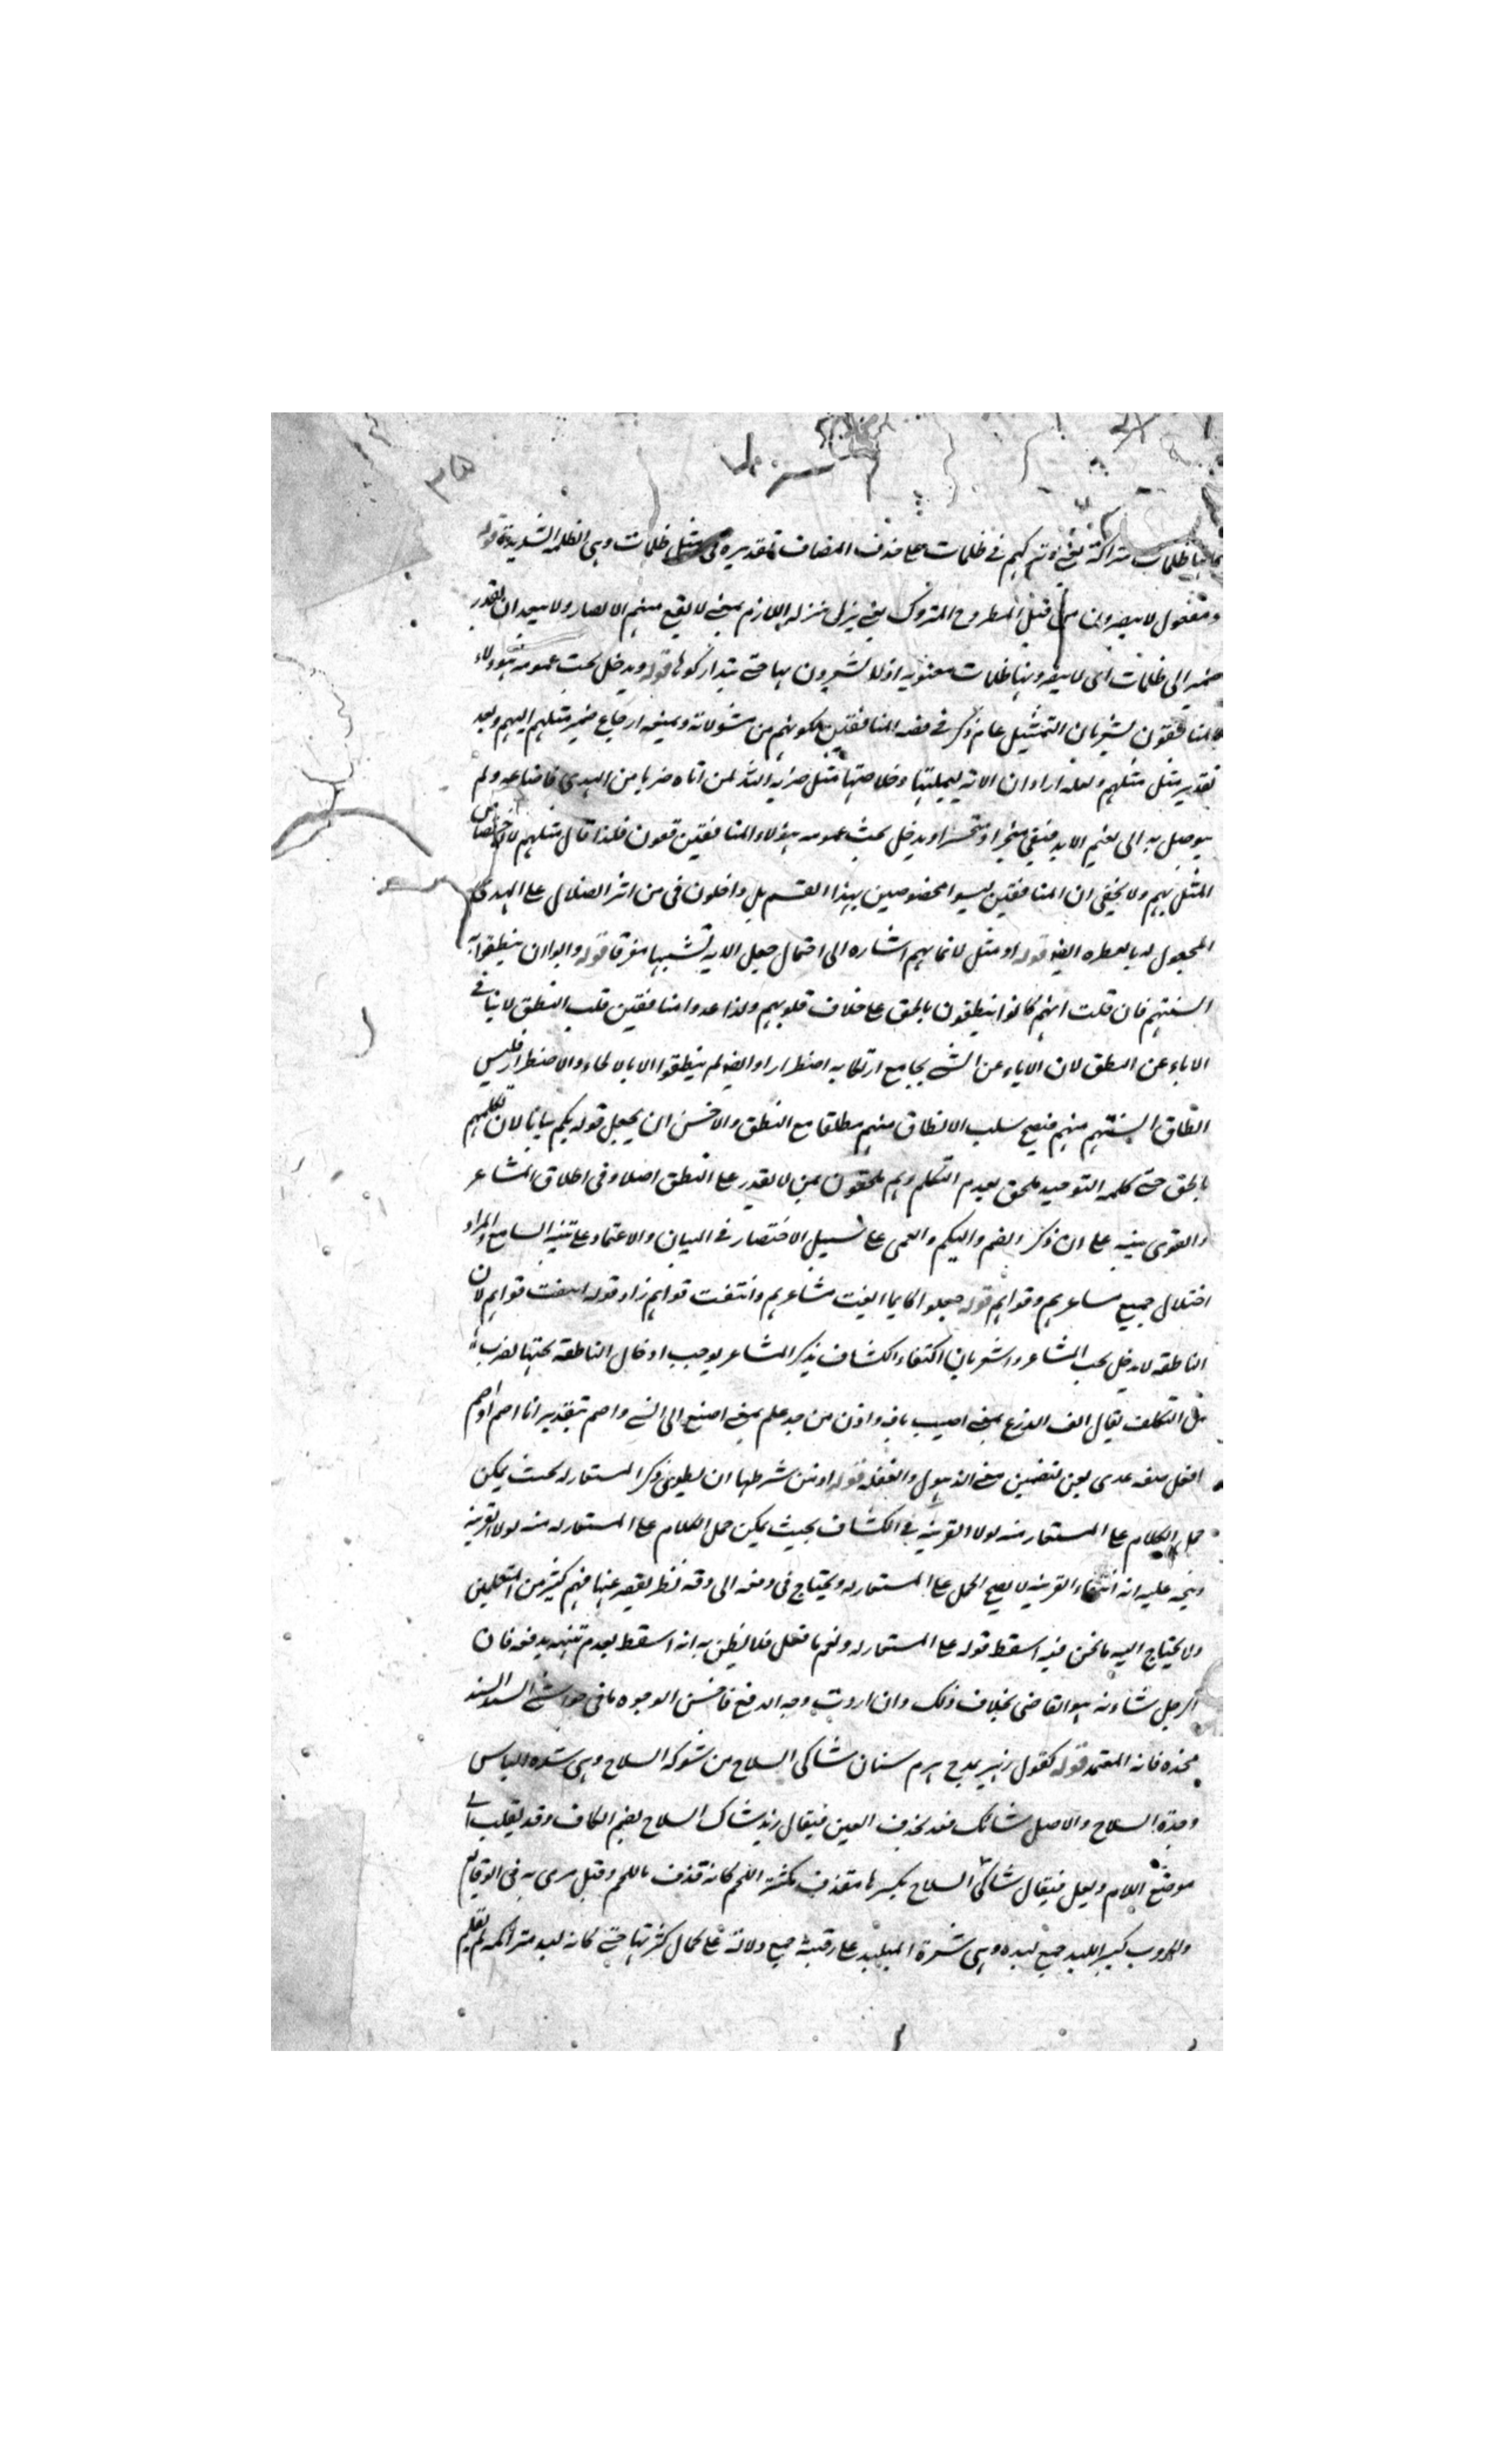 ٣٥
كانها ظلمات متراكمة يعني وتركهم في ظلمات على حذف المضاف تقديره في مثل ظلمات وهي الظلمة الشديدة قوله
ومفعول لا يبصرون من قبيل المطروح المتروك يعني نزل منزلة اللازم بمعنى لا يقع منهم الابصار ولا يبعد ان يقدر
ضمير الى ظلمات اى لا يبصرونها ظلمات معنوية اذ لا يشعرون بها حتى يتداركوها قوله ويدخل تحت عمومه هؤلاء
المنافقون يشعر بان التمثيل عام ذكر في قصة المنافقين لكونهم من مشمولاته ويمنعه ارجاع ضمير مثلهم اليهم وبعد
تقدير مثل مثلهم ولعله اراد ان الاية بجملتها وخلاصتها مثل ضربه الله لمن اتاه ضربا من الهدى فاضاعه ولم
يتوصل به الى نعيم الابد فبقي متحيرا ومتحسرا ويدخل تحت عمومه هؤلاء المنافقين فلذا قال مثلهم لاختصاص
المثل بهم ولا يخفى ان المنافقين ليسوا مخصوصين بهذا القسم بل داخلون في من اثر الضلال على الهدى
المجعول له بالفطرة ايضا قوله او مثل لايمانهم اشارة الى احتمال جعل الاية تشبيها مفرقا قوله وابوا ان ينطقوا به
السنتهم فان قلت انهم كانوا ينطقون بالحق على خلاف قلوبهم ولذا عدوا منافقين قلت النطق لا ينافي
الاباء عن النطق لان الاباء عن الشئ يجامع ارتكابه اضطرارا وايضا لم ينطقوا الا بالالجاء والاضطرار فليس
انطاق السنتهم منهم فيصح سلب الانطاق منهم مطلقا مع النطق والاحسن ان يجعل قوله بكم بيانا لان تكلمهم
بالحق حتى كلمة التوحيد ملحق بعدم التكلم وهم ملحقون بمن لا يقدر على النطق اصلا وفي اطلاق المشاعر
والقوى تنبيه على ان ذكر الصم والبكم والعمى على سبيل الاختصار في البيان والاعتماد على تنبه السامع والمراد
اختلال جميع مشاعرهم وقواهم قوله جعلوا كانما ايفت مشاعرهم وانتفت قواهم زاد قوله انتفت قواهم لان
الناطقة لا تدخل تحت المشاعر واشعر بان اكتفاء الكشاف بذكر المشاعر يوجب ادخال الناطقة تحتها بضرب
من التكلف يقال ايف الزرع بمعنى اصيب بافة واذن من حد علم بمعنى اصغى الى الشئ واصم بتقدير انا اصم او اصم
افعل صفة عدى بعن لتضمين معنى الذهول والغفلة قوله اذ من شرطها ان يطوى ذكر المستعار له بحيث يمكن
حمل الكلام على المستعار منه لولا القرينة في الكشاف بحيث يمكن حمل الكلام على المستعار له منه لولا القرينة
ويتجه عليه ان انتفاء القرينة لا يصح الحمل على المستعار له ويحتاج في دفعه الى دقة نظر يقصر عنها فهم كثير من المتعلمين
ولا يحتاج اليه ما نحن فيه اسقط قوله على المستعار له ونعم ما فعل فلا يظن به انه اسقط لعدم تنبه يدفعه فان
الرجل شاءنه هو القاضي بخلاف ذلك وان اردت وجه الدفع فاحسن الوجوه ما في حواشي السيد السند
فخذه فانه المعتمد قوله كقول زهير يمدح هرم سنان شاكى السلاح من شوكة السلاح وهي شدة الباس
وحدة السلاح والاصل شائك فقد يحذف العين فيقال زيد شاك السلاح بضم الكاف وقد يقلب الى
موضع اللام ويعل فيقال شاكى السلاح بكسرها مقذف بكثرة اللحم كانه قذف باللحم وقيل رمى به في الوقايع
والحروب كثيرا لبد جمع لبدة وهي شعرة المتلبد على رقبته جمع دلالة على كمال كثرتها حتى كانه لبد متراكمة لم تقلم